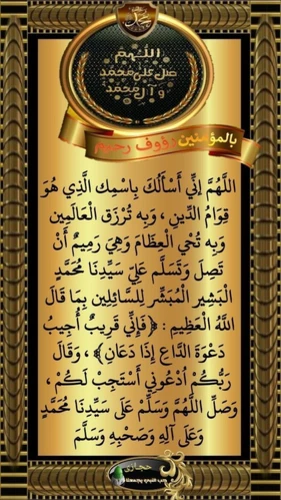 محمد
اللهم
صل على محمد
وآل محمد
بالمؤمنين رؤوف رحيم
اللَّهُمَّ إِنِّي أَسْأَلُكَ بِاسْمِكَ الَّذِي هُوَ
قِوَامُ الدِّينِ ، وَبِهِ تُرْزَقُ الْعَالَمِينَ
وَبِهِ تُحْيِي الْعِظَامَ وَهِيَ رَمِيمٌ أَنْ
تُصَلِّ وَتُسَلِّم عَلَى سَيِّدِنَا مُحَمَّدٍ
الْبَشِيرِ الْمُبَشِّرِ لِلسَّائِلِينَ بِمَا قَالَ
اللَّهُ الْعَظِيمُ : ﴿فَإِنِّي قَرِيبٌ أُجِيبُ
دَعْوَةَ الدَّاعِ إِذَا دَعَانِ﴾ ، وَقَالَ
رَبُّكُمْ ادْعُونِي أَسْتَجِبْ لَكُمْ ،
وَصَلِّ اللَّهُمَّ وَسَلِّمْ عَلَى سَيِّدِنَا مُحَمَّدٍ
وَعَلَى آلِهِ وَصَحْبِهِ وَسَلَّمَ
حجازى
حب النبي يجمعنا